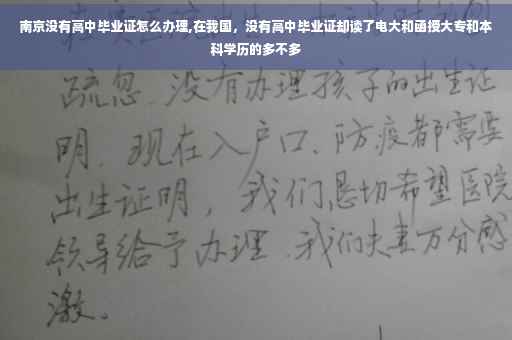 南京没有高中毕业证怎么办理,在我国，没有高中毕业证却读了电大和函授大专和本
科学历的多不多
疏忽.没有办理孩子的出生证
明.现在入户口、防疫都需要
出生证明，我们恳切希望医院
领导给予办理.我们夫妻万分感
激。